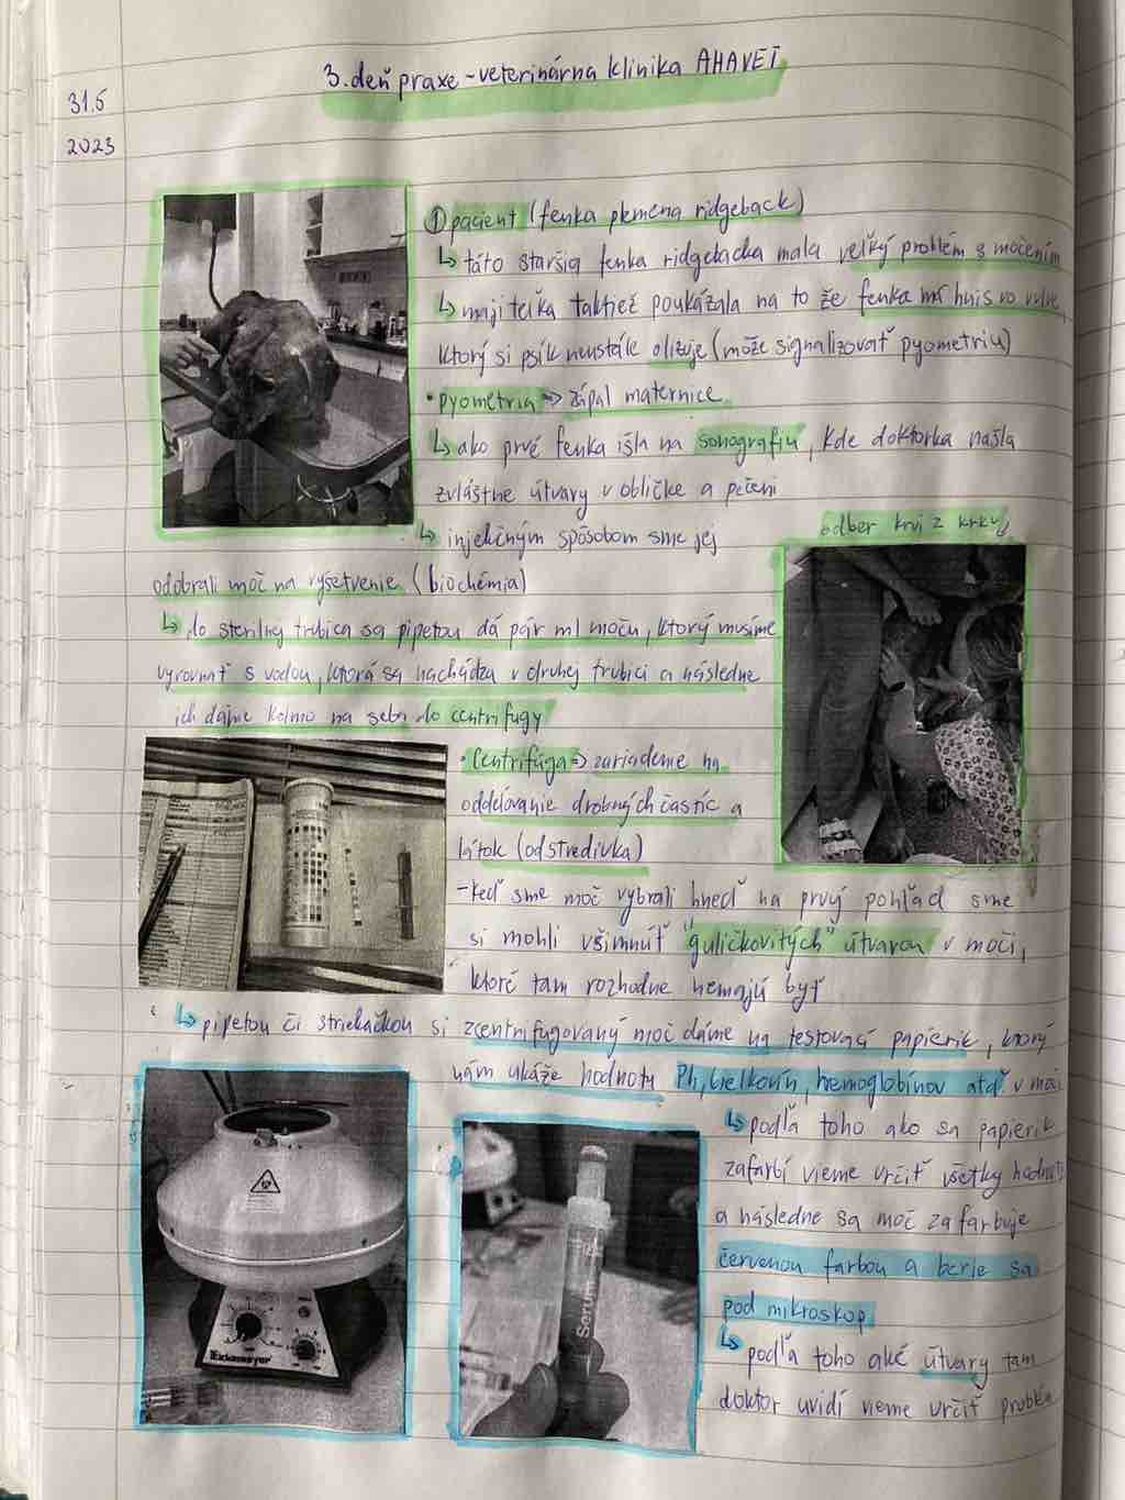 3. deň praxe - veterinárna klinika AHAVET
31.5
2023
① pacient (fenka plemena ridgeback)
↳ táto staršia fenka ridgebacka mala veľký problém s močením
↳ majiteľka taktiež poukázala na to že fenka má hnis vo vulve,
ktorý si psík neustále olizuje (može signalizovať pyometriu)
• pyometria => zápal maternice
↳ ako prvé fenka išla na sonografiu, kde doktorka našla
zvláštne útvary v obličke a pečeni
odber krvi z krku
↳ injekčným spôsobom sme jej
odobrali moč na vyšetrenie (biochémia)
↳ do sterilnej trubica sa pipetou dá pár ml moču, ktorý musíme
vyrovnať s vodou, ktorá sa nachádza v druhej trubici a následne
ich dáme kolmo na seba do centrifugy
• Centrifúga => zariadenie na
oddeľovanie drobných častíc a
látok (odstredivka)
- keď sme moč vybrali hneď na prvý pohľad sme
si mohli všimnúť "guličkovitých" útvarov v moči,
ktoré tam rozhodne nemajú byť
↳ pipetou či striekačkou si zcentrifugovaný moč dáme na testovací papierik, ktorý
nám ukáže hodnoty Ph, bielkovín, hemoglobínov atď. v moči
↳ podľa toho ako sa papierik
zafarbí vieme určiť všetky hodnoty
a následne sa moč zafarbuje
červenou farbou a berie sa
pod mikroskop
↳ podľa toho aké útvary tam
doktor uvidí vieme určiť
Serum